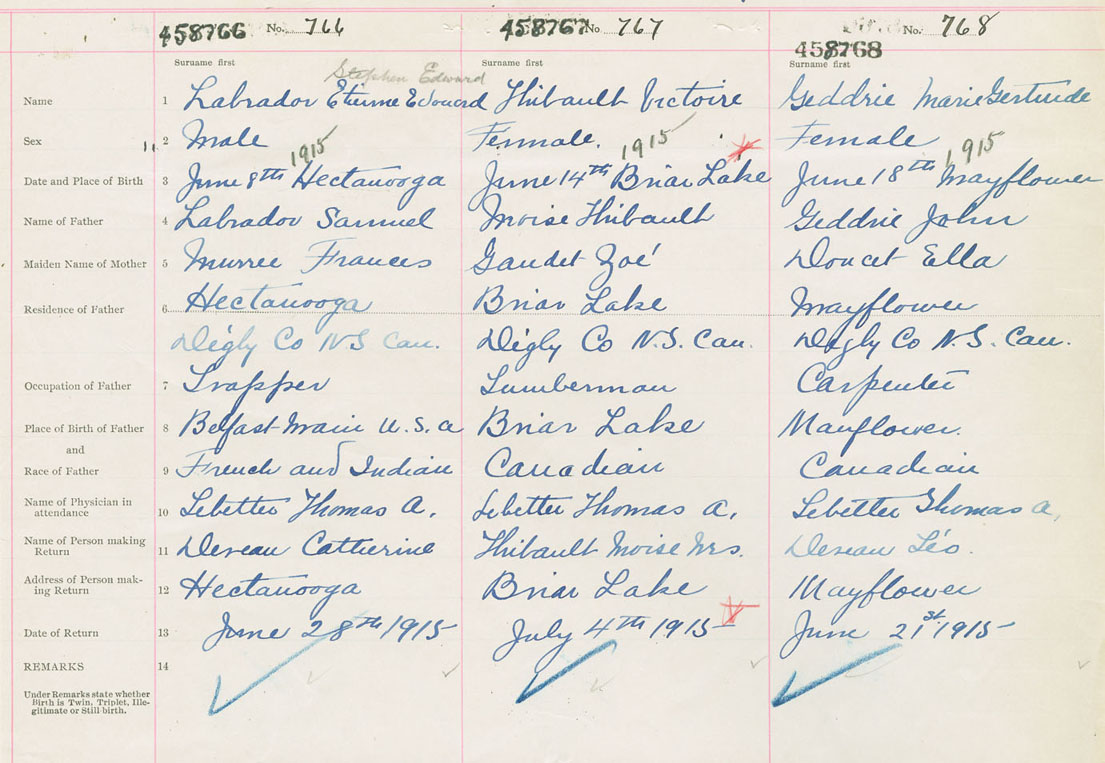 458766 No. 766 458767 No 767 458768 No. 768
Surname first Surname first Surname first
Stephen Edward
Name 1 Labrador Etienne Edouard Thibault Victoire Geddrie Marie Gertrude
Sex 2 Male Female. Female
1915 1915 1915
Date and Place of Birth 3 June 8th Hectanooga June 14th Briar Lake June 18th Mayflower
Name of Father 4 Labrador Samuel Moise Thibault Geddrie John
Maiden Name of Mother 5 Murree Frances Gaudet Zoé Doucet Ella
Residence of Father 6 Hectanooga Briar Lake Mayflower
Digby Co N S Can. Digby Co N.S. Can. Digby Co N.S. Can.
Occupation of Father 7 Trapper Lumberman Carpenter
Place of Birth of Father 8 Belfast Main U.S.a Briar Lake Mayflower.
and
Race of Father 9 French and Indian Canadian Canadian
Name of Physician in
attendance 10 Lebetter Thomas A. Lebetter Thomas A. Lebetter Thomas A.
Name of Person making
Return 11 Deveau Catherine Thibault Moise Mrs. Deveau Léo.
Address of Person mak-
ing Return 12 Hectanooga Briar Lake Mayflower
Date of Return 13 June 28th 1915 July 4th 1915 June 21st 1915
REMARKS 14
Under Remarks state whether
Birth is Twin, Triplet, Ille-
gitimate or Still-birth.